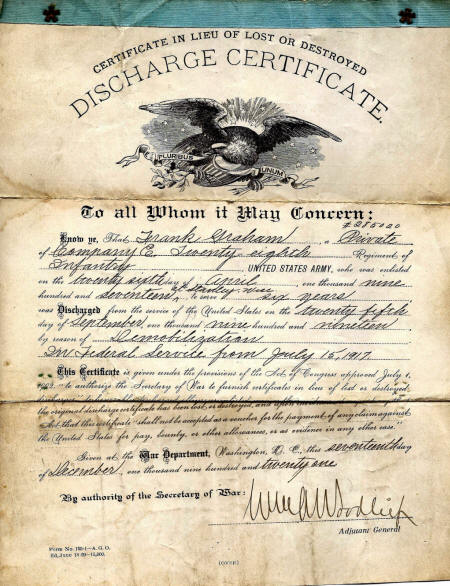 CERTIFICATE IN LIEU OF LOST OR DESTROYED
DISCHARGE CERTIFICATE.
PLURIBUS UNUM
To all Whom it May Concern:
Know ye, That Frank Graham a Private
of Company E, Twenty-eighth Regiment of
Infantry UNITED STATES ARMY, who was enlisted
on the twenty sixth day of April, one thousand nine
hundred and seventeen, at to serve six years
was Discharged from the service of the United States on the twenty fifth
day of September, one thousand nine hundred and nineteen
by reason of Demobilization
In Federal Service from July 15, 1917.
This Certificate is given under the provisions of the Act of Congress approved July 1,
1902 to authorize the Secretary of War to furnish certificates in lieu of lost or destroyed
the original discharge certificate has been lost or destroyed, and
Act that this certificate "shall not be accepted as a voucher for the payment of any claim against
the United States for pay, bounty, or other allowances, or as evidence in any other case."
Given at the War Department, Washington, D. C., this seventeenth day
of December, one thousand nine hundred and twenty one
By authority of the Secretary of War:
Adjutant General
Form No. A. G. O.
(OVER)